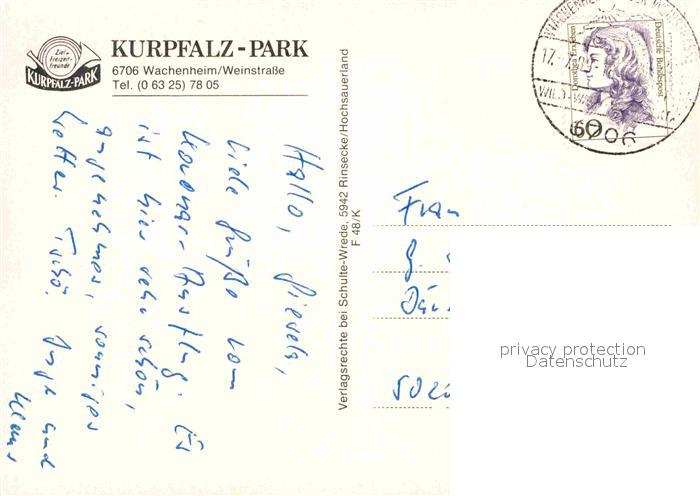 Ziel-
Freizeit-
freunde
KURPFALZ-PARK
KURPFALZ-PARK
6706 Wachenheim/Weinstraße
Tel. (0 63 25) 78 05
Hallo, Gisela,
liebe Grüße vom
Ausflug. Es
ist hier sehr schön,
angenehmes, sonniges
Wetter. Tschö.
und
Klaus
Verlagsrechte bei Schulte-Wrede, 5942 Rinsecke/Hochsauerland
F 48/K
Deutsche Bundespost
60
17.
6706
Frau
G.
privacy protection
Datenschutz